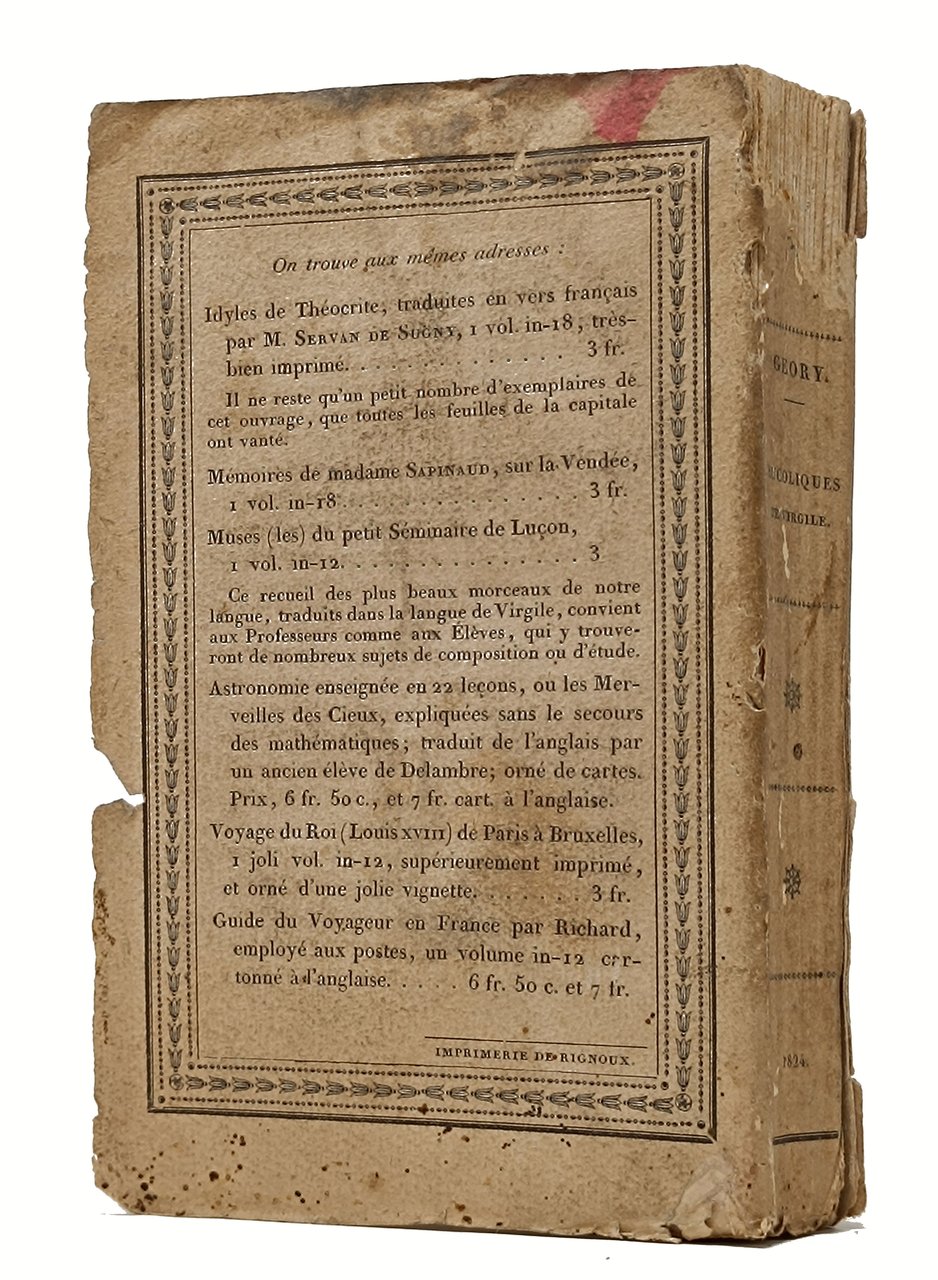 On trouve aux mêmes adresses :
Idyles de Théocrite, traduites en vers français
par M. SERVAN DE SUGNY, 1 vol. in-18, très-
bien imprimé. . . . . . . . . . . . . 3 fr.
Il ne reste qu'un petit nombre d'exemplaires de
cet ouvrage, que toutes les feuilles de la capitale
ont vanté.
Mémoires de madame SAPINAUD, sur la Vendée,
1 vol. in-18. . . . . . . . . . . . . . . 3 fr.
Muses (les) du petit Séminaire de Luçon,
1 vol. in-12. . . . . . . . . . . . . . . 3
Ce recueil des plus beaux morceaux de notre
langue, traduits dans la langue de Virgile, convient
aux Professeurs comme aux Élèves, qui y trouve-
ront de nombreux sujets de composition ou d'étude.
Astronomie enseignée en 22 leçons, ou les Mer-
veilles des Cieux, expliquées sans le secours
des mathématiques; traduit de l'anglais par
un ancien élève de Delambre; orné de cartes.
Prix, 6 fr. 50 c., et 7 fr. cart. à l'anglaise.
Voyage du Roi (Louis XVIII) de Paris à Bruxelles,
1 joli vol. in-12, supérieurement imprimé,
et orné d'une jolie vignette. . . . . . . 3 fr.
Guide du Voyageur en France par Richard,
employé aux postes, un volume in-12 car-
tonné à l'anglaise. . . . . 6 fr. 50 c. et 7 fr.
IMPRIMERIE DE RIGNOUX.
GEORY.
UCOLIQUES
DE VIRGILE.
1824.